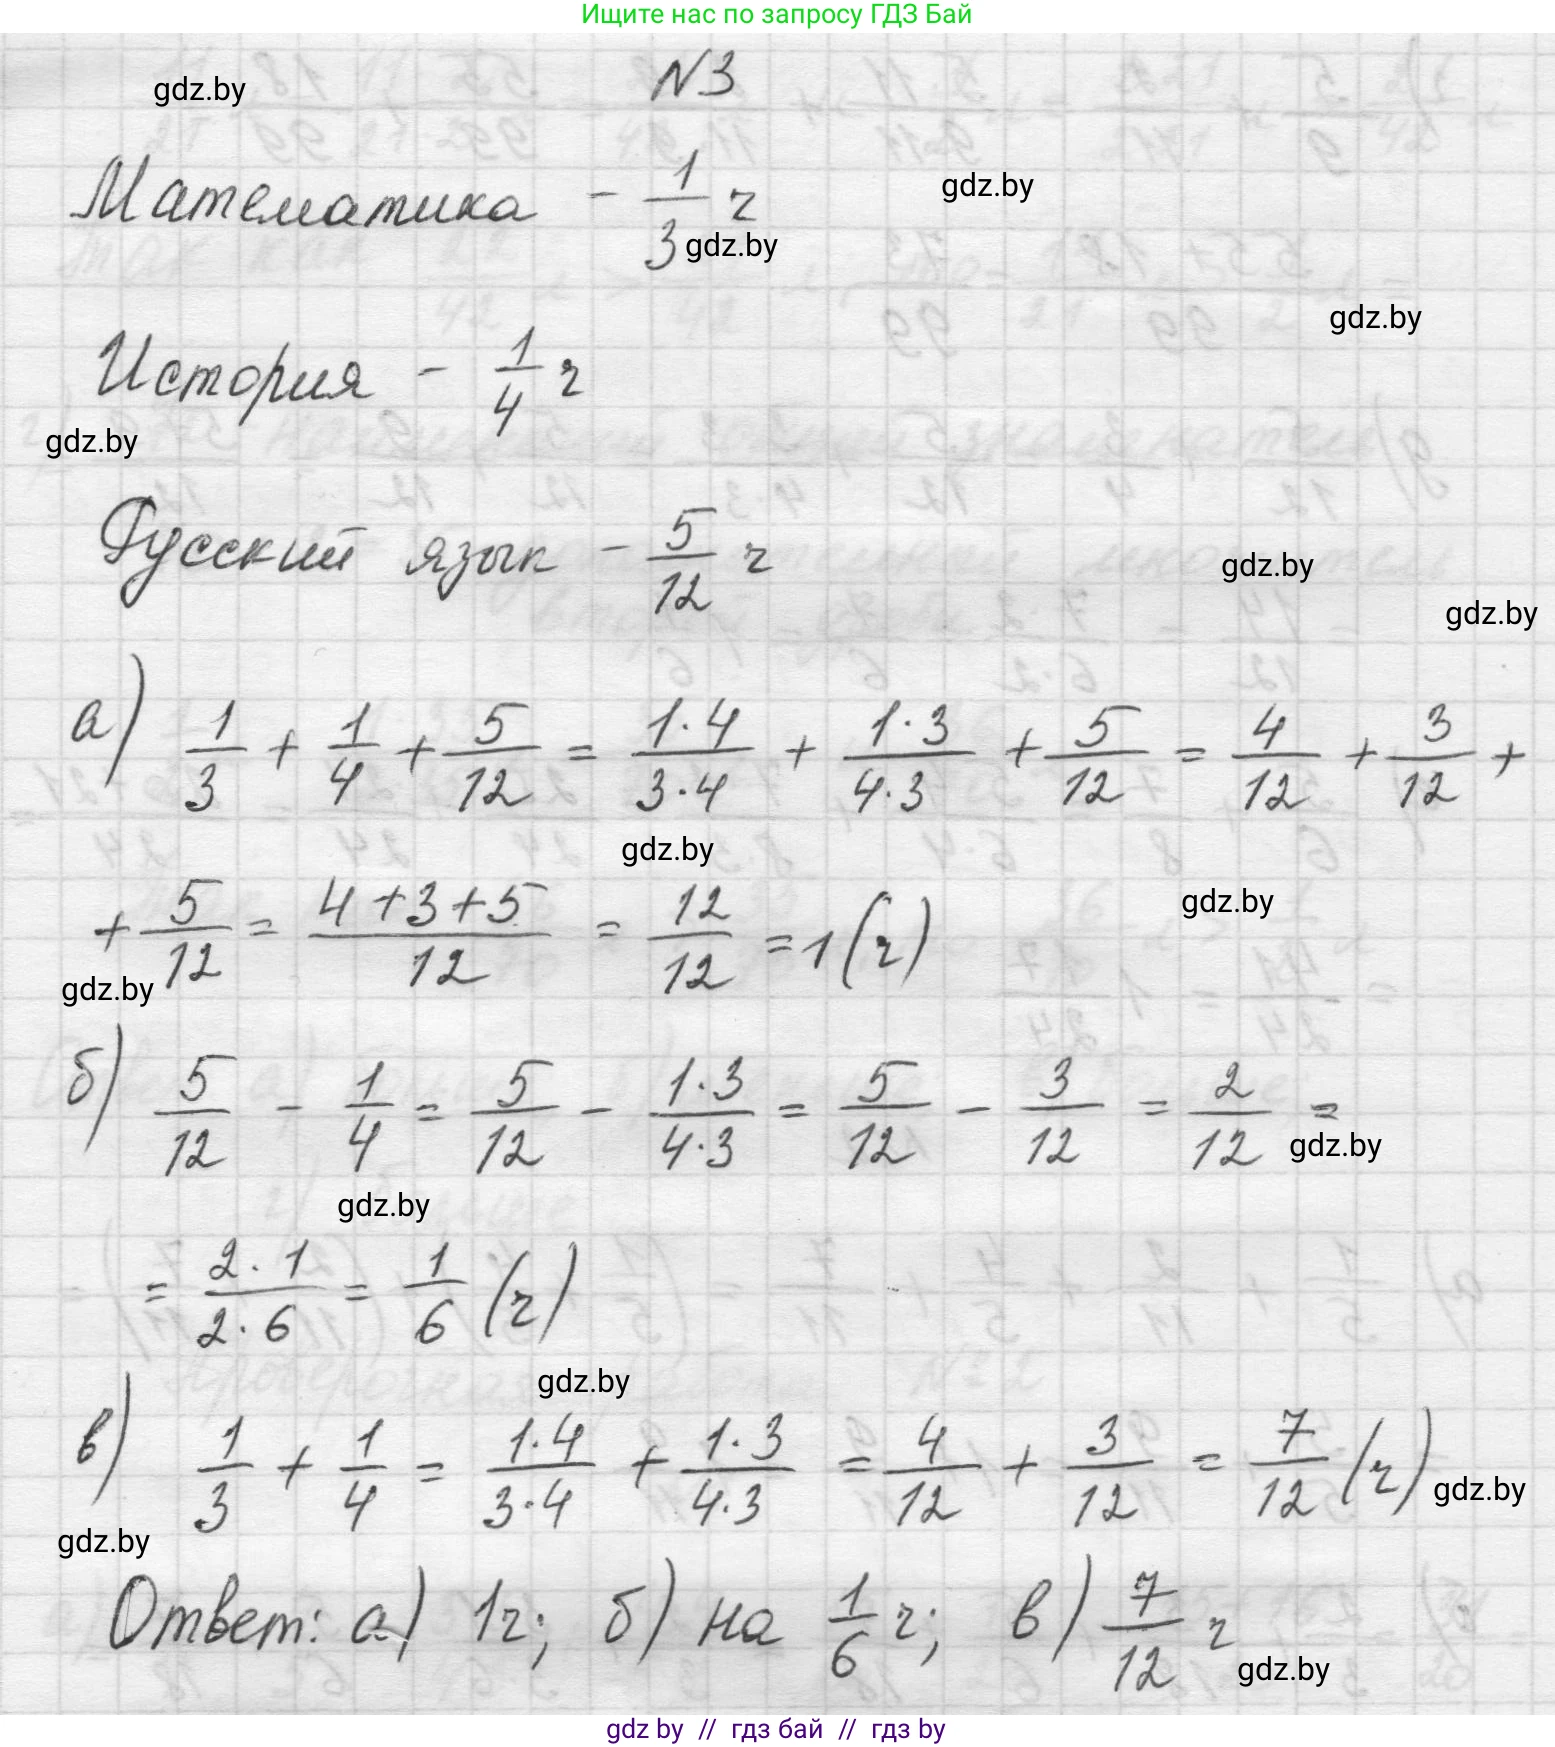 Ищите нас по запросу ГДЗ Бай
N3
gdz.by
Математика - 1/3 ч
gdz.by
gdz.by
gdz.by
История - 1/4 ч
gdz.by
Русский язык - 5/12 ч
gdz.by
gdz.by
а) 1/3 + 1/4 + 5/12 = 1·4/3·4 + 1·3/4·3 + 5/12 = 4/12 + 3/12 +
gdz.by
gdz.by
+ 5/12 = 4+3+5/12 = 12/12 = 1 (ч)
gdz.by
б) 5/12 - 1/4 = 5/12 - 1·3/4·3 = 5/12 - 3/12 = 2/12 =
gdz.by
gdz.by
= 2·1/2·6 = 1/6 (ч)
gdz.by
в) 1/3 + 1/4 = 1·4/3·4 + 1·3/4·3 = 4/12 + 3/12 = 7/12 (ч)
gdz.by
gdz.by
Ответ: а) 1ч; б) на 1/6 ч; в) 7/12 ч
gdz.by
gdz by // гдз бай // гдз by